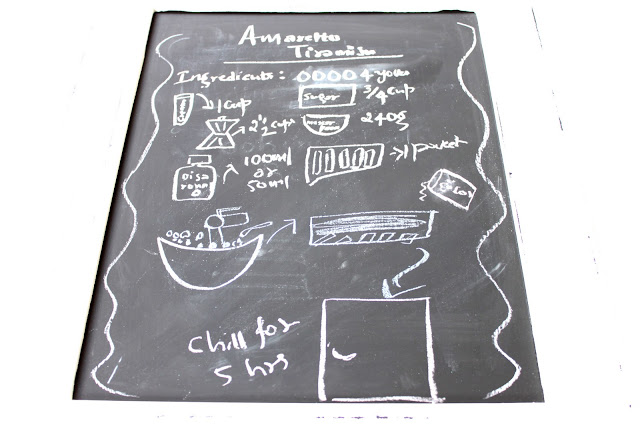 Amaretto
Tiramisu
Ingredients: 4 yolks
Cream 1 cup
Sugar 3/4 cup
2 1/2 cups
240g
Disaronno
100ml
or
50ml
1 packet
Chill for
5 hrs